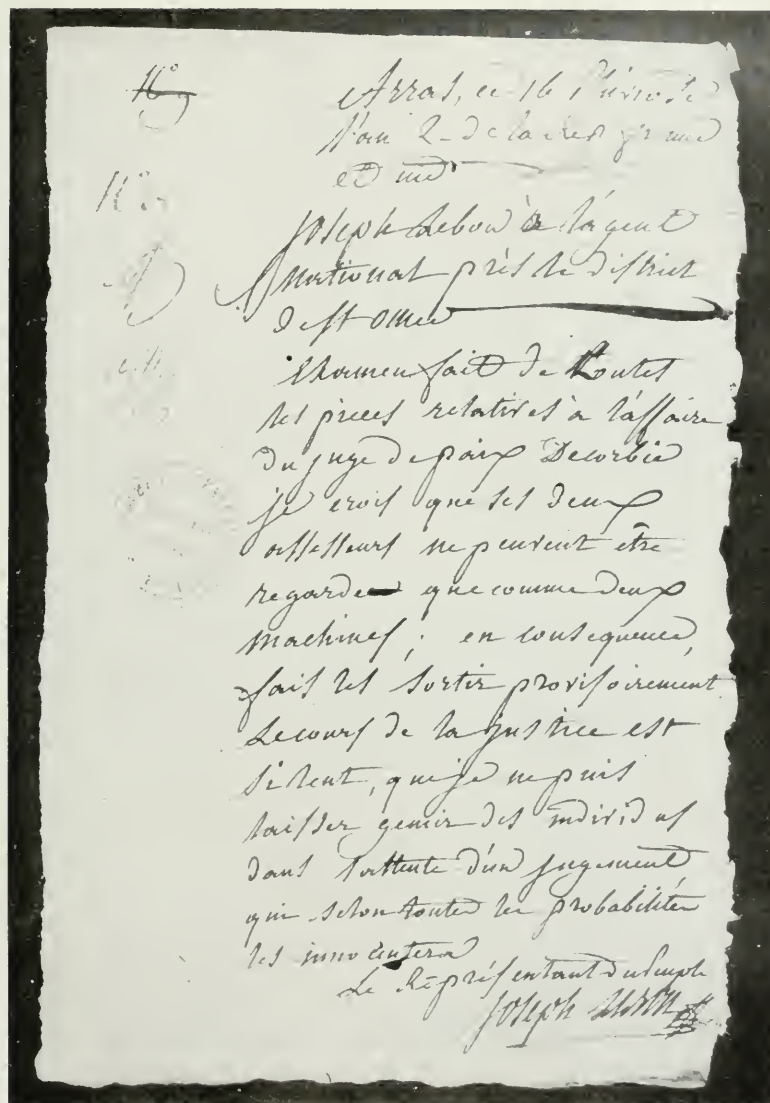 N°
Arras, ce 16 nivose
l'an 2 de la rep. f. une
et ind.
N°
Joseph Lebon à l'agent
national près le district
de St Omer
Examen fait de toutes
les pieces relatives à l'affaire
du juge de paix Decorbie
je crois que ses deux
assesseurs ne peuvent etre
regardes que comme deux
machines; en consequence,
fais les sortir provisoirement.
Le cours de la justice est
si lent, que je ne puis
laisser gemir des individus
dans l'attente d'un jugement
qui selon toutes les probabilités
les innocentera
Le Représentant du Peuple
Joseph Lebon